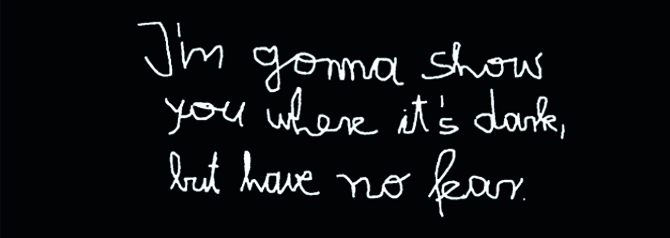 I'm gonna show
you where it's dark,
but have no fear.